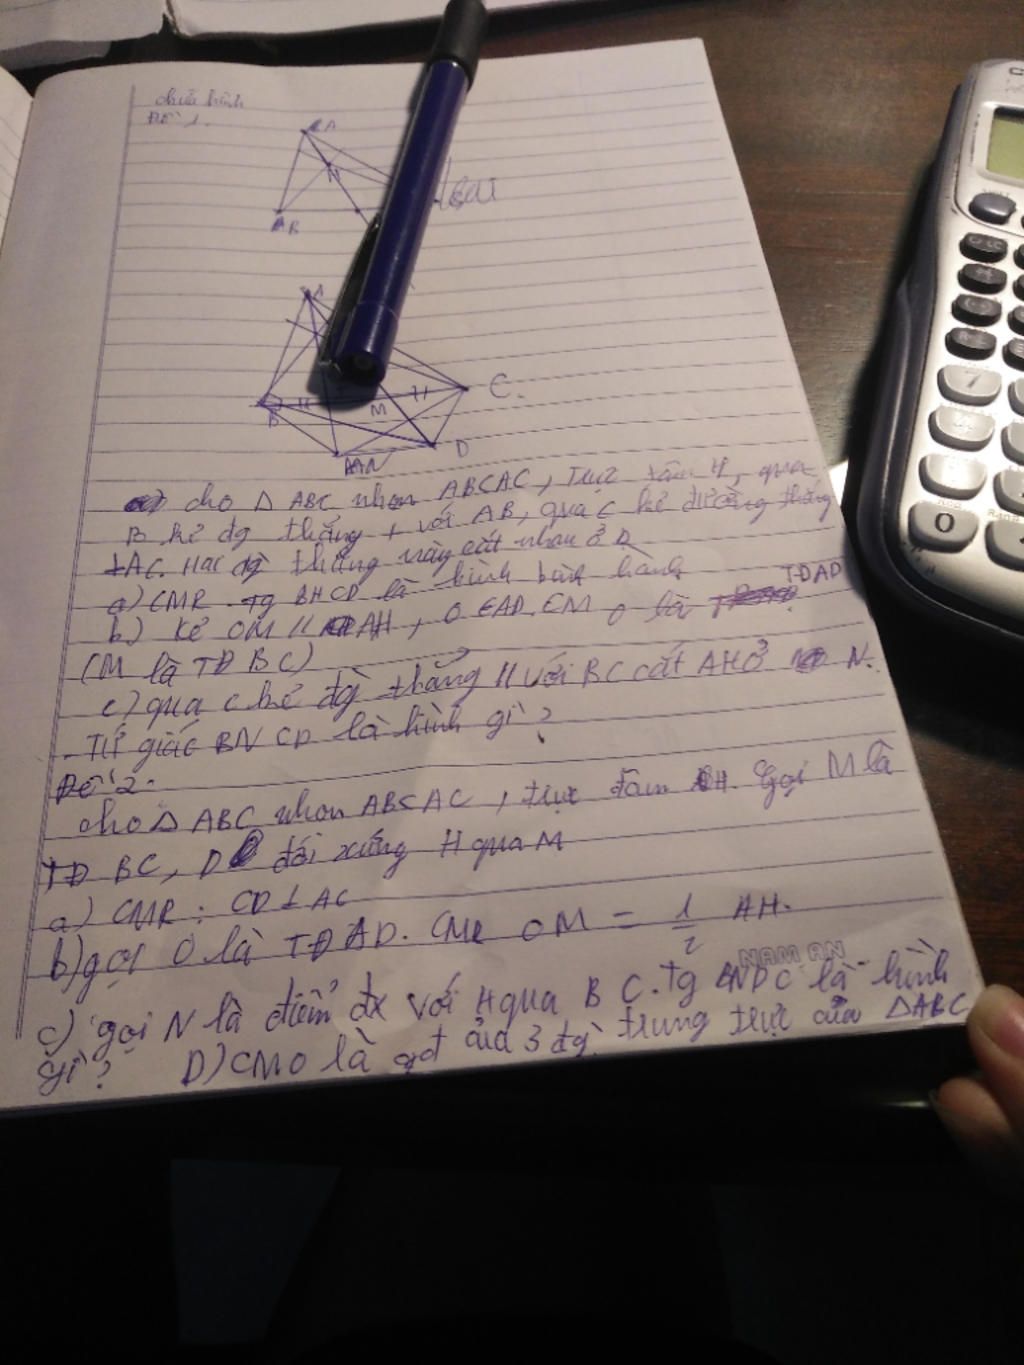 chữa hình
Đề 1.
A
H
B
sai
A
B
M
C.
D
N
cho Δ ABC nhọn AB<AC, trực tâm H, qua
B kẻ đg thẳng ⊥ với AB, qua C kẻ đường thẳng
⊥AC. Hai đg thẳng này cắt nhau ở D
a) CMR tg BHCD là hình bình hành
b) Kẻ OM // AH, O ∈ AD. CM O là TĐ AD
(M là TĐ BC)
c) qua C kẻ đg thẳng // với BC cắt AH ở N.
Tứ giác BNCD là hình gì?
Đề 2.
cho Δ ABC nhọn AB<AC, trực tâm H. Gọi M là
TĐ BC, D đối xứng H qua M
a) CMR: CD ⊥ AC
b) gọi O là TĐ AD. CMR OM = 1/2 AH.
NAM AN
c) gọi N là điểm đx với H qua BC. Tg BNDC là hình
gì? D) CM O là gđ của 3 đg trung trực của ΔABC